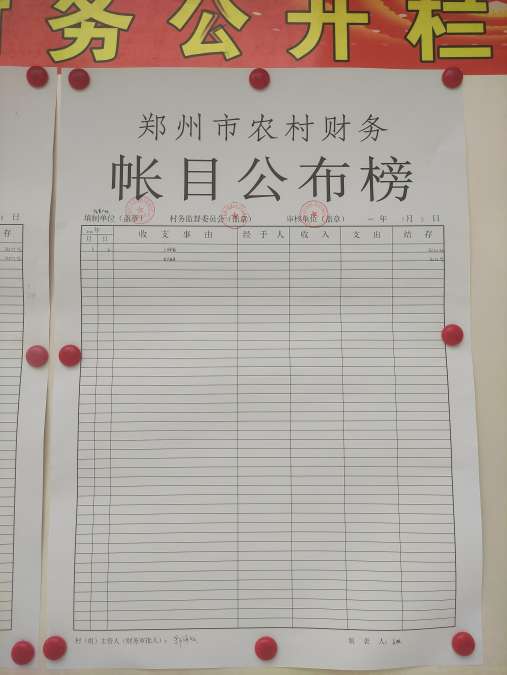 务公开栏
郑州市农村财务
帐目公布榜
填制单位（盖章） 村务监督委员会（盖章） 审核单位（盖章） 年 月 日
日
年
月 日 收支事由 经手人 收入 支出 结存
存
村（组）主管人（财务审批人）： 制表人：